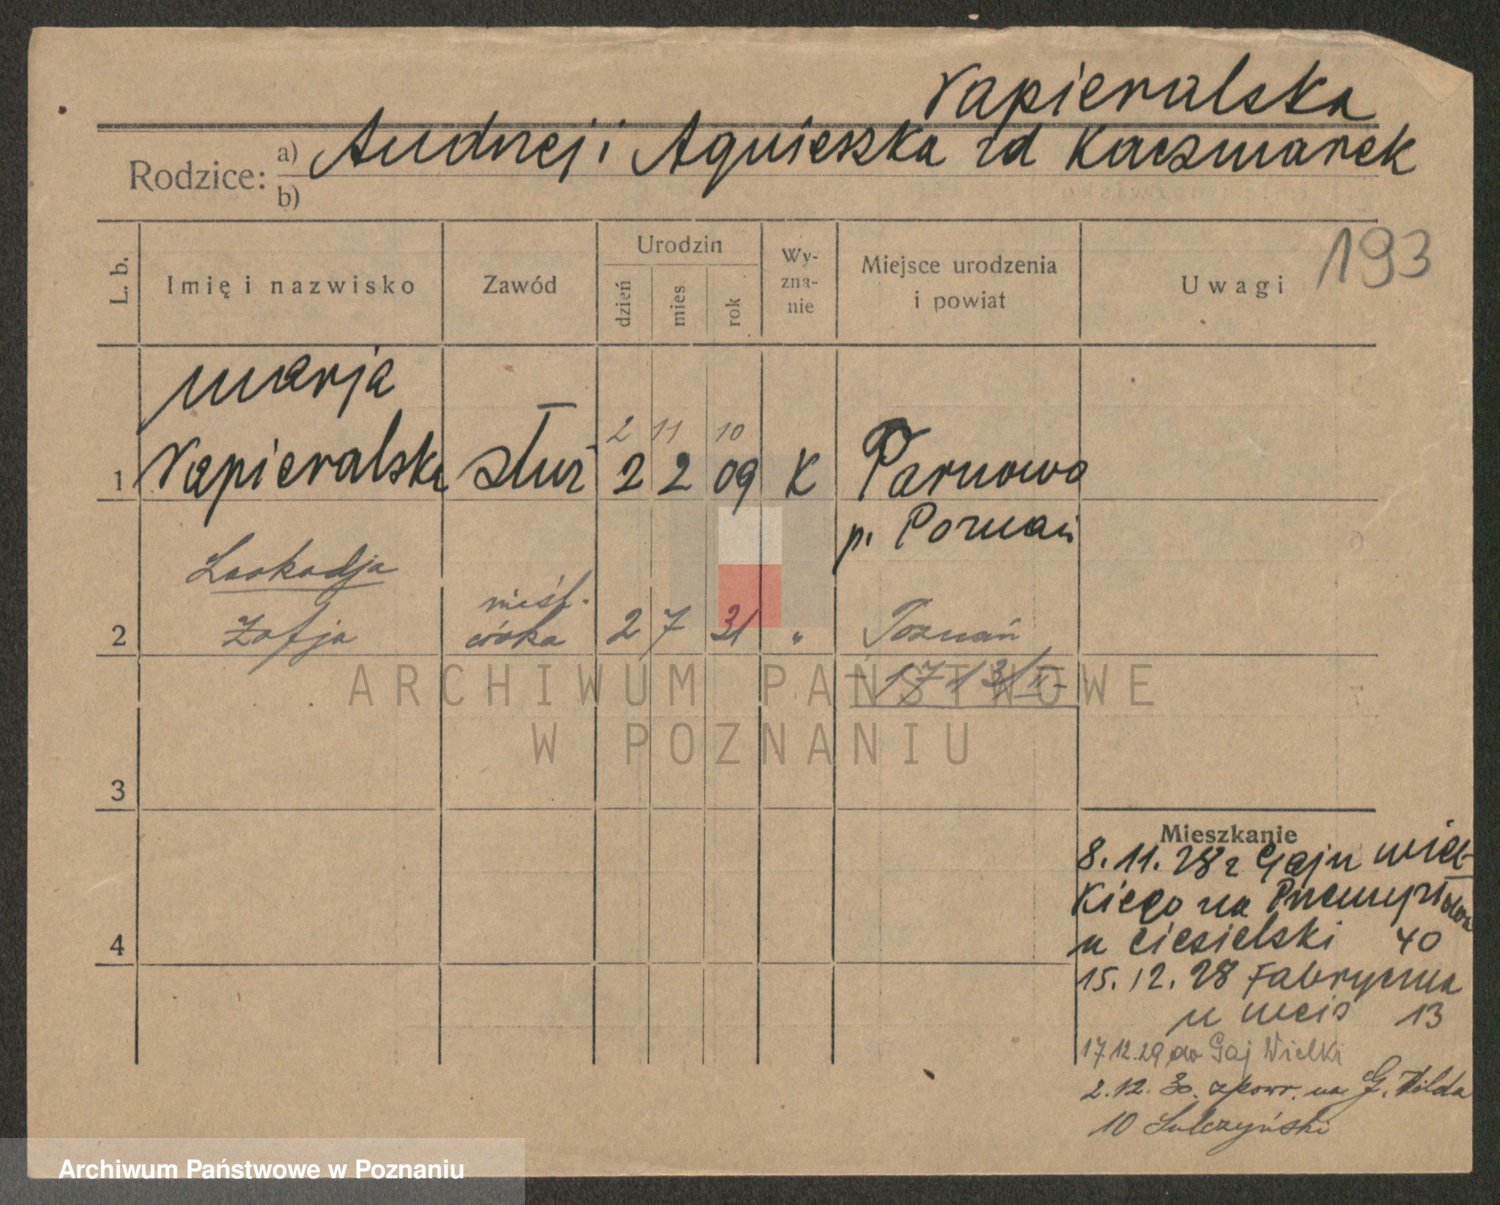 Napieralska
Rodzice: a) Andrzej i Agnieszka zd Kaczmarek
b)
193
L. b.
Imię i nazwisko
Zawód
Urodzin
dzień
mies
rok
Wy-
zna-
nie
Miejsce urodzenia
i powiat
Uwagi
Marja
2 11 10
1 Napieralska służ 2 2 09 K Parnowo
p. Poznań
Leokadja
Zofja
2 2 7 31 " Poznań
ARCHIWUM PAŃSTWOWE
W POZNANIU
3
Mieszkanie
8.11.28 z Gaju Wiel-
kiego na Przemysłowa
4 u Ciesielski 40
15.12.28 Fabryczna
u Weis 13
17.12.29 do Gaj Wielki
2.12.30. zpowr. na G. Wilda
10 Sulczyński
Archiwum Państwowe w Poznaniu